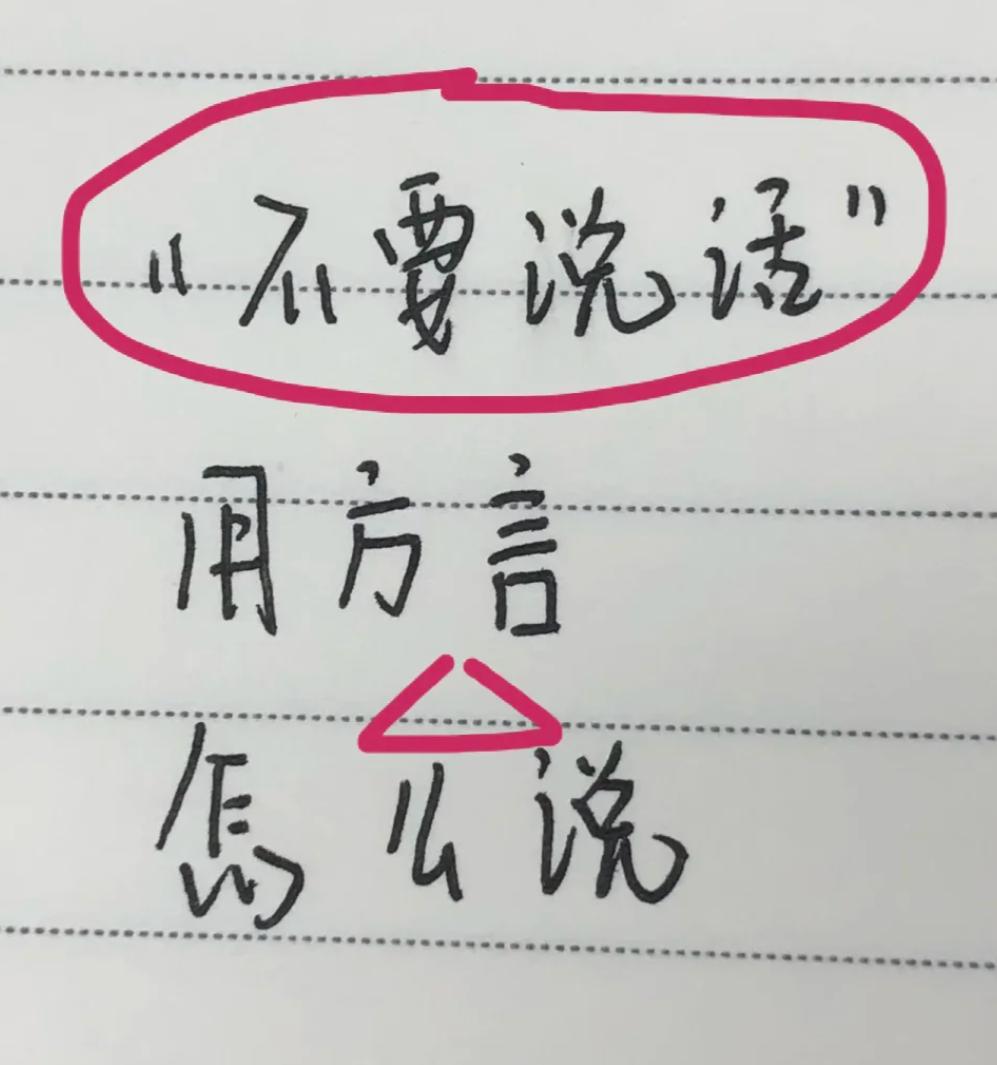 “不要说话”
用方言
怎么说